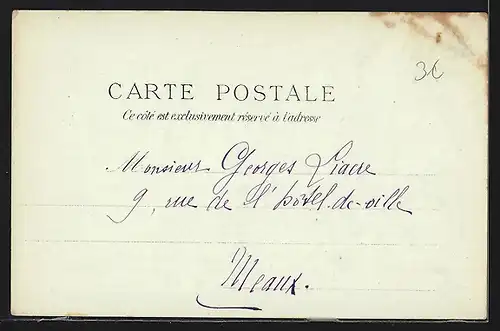 3€
CARTE POSTALE
Ce côté est exclusivement réservé à l'adresse
Monsieur Georges
9, rue de l'hôtel-de-ville
Meaux.